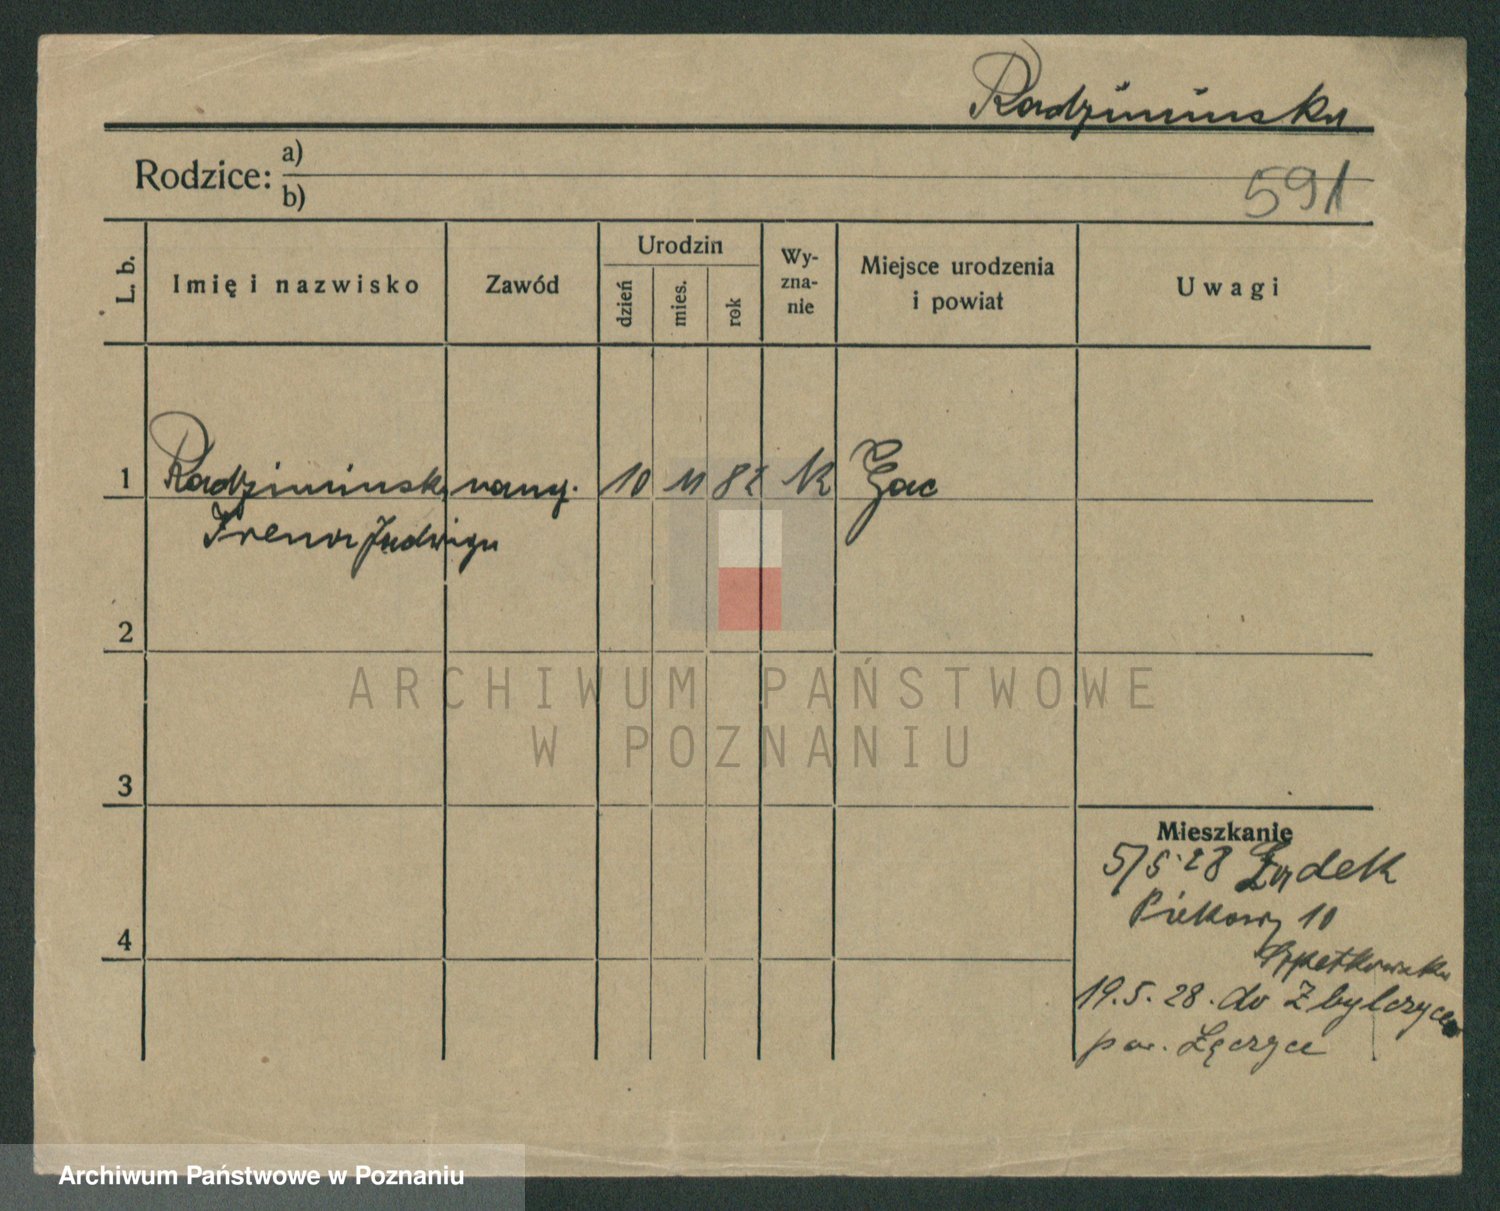 Radzimińska
Rodzice: a)
b)
591
L. b.
Imię i nazwisko
Zawód
Urodzin
dzień
mies.
rok
Wy-
zna-
nie
Miejsce urodzenia
i powiat
Uwagi
1 Radzimińska 10 11 82 K Gac
Irena Jadwiga
2
ARCHIWUM PAŃSTWOWE
W POZNANIU
3
Mieszkanie
5/5 28
Piekary 10
4
19.5.28. do Zbylczyce
pow. Łęczyce
Archiwum Państwowe w Poznaniu